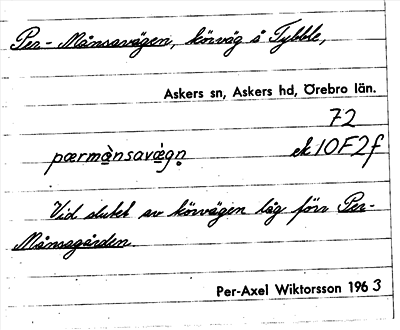 Per-Månsavägen, körväg å Tybble,
Askers sn, Askers hd, Örebro län.
72
pærmànsavægn̥ ek 10F2f
Vid slutet av körvägen låg förr Per-
Månsagården.
Per-Axel Wiktorsson 1963